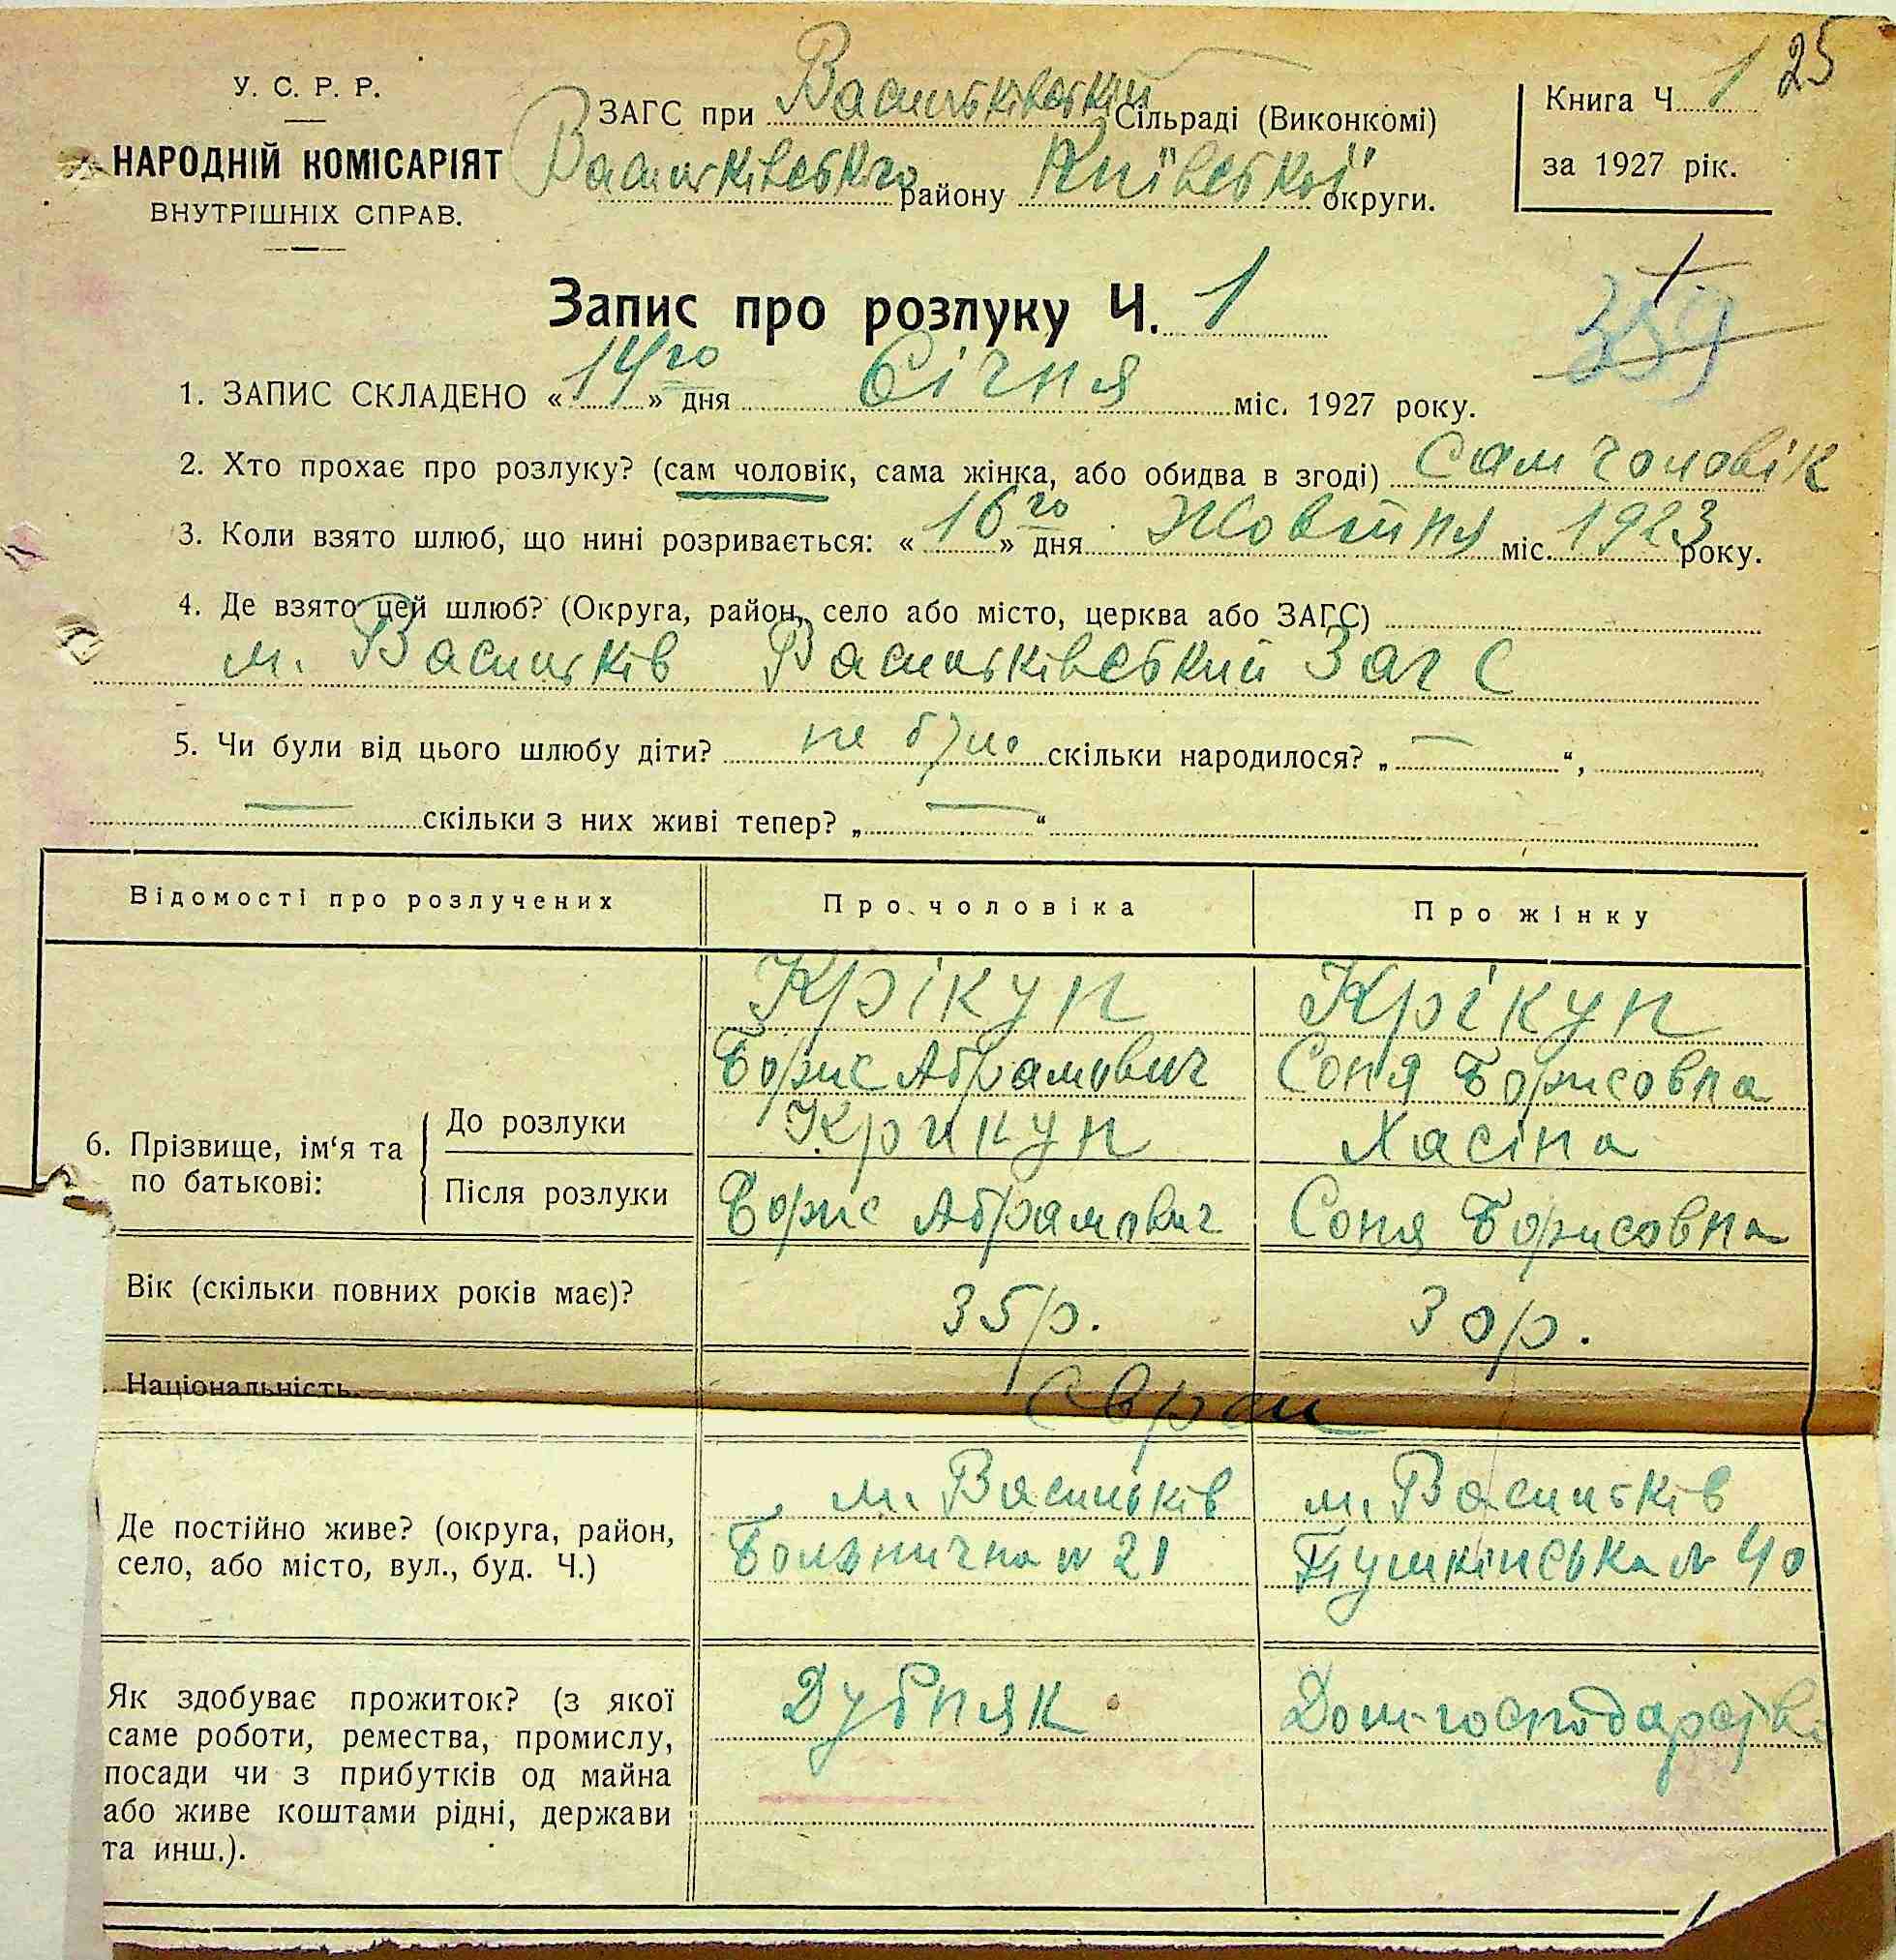 25
У. С. Р. Р.
НАРОДНІЙ КОМІСАРІЯТ
ВНУТРІШНІХ СПРАВ.
ЗАГС при Васильківській Сільраді (Виконкомі)
Васильківського району Київської округи.
Книга Ч. 1
за 1927 рік.
359
Запис про розлуку Ч. 1
1. ЗАПИС СКЛАДЕНО «14го» дня Січня міс. 1927 року.
2. Хто прохає про розлуку? (сам чоловік, сама жінка, або обидва в згоді) Сам чоловік
3. Коли взято шлюб, що нині розривається: «16го» дня Жовтня міс. 1923 року.
4. Де взято цей шлюб? (Округа, район, село або місто, церква або ЗАГС)
м. Васильків Васильківський Загс
5. Чи були від цього шлюбу діти? не було скільки народилося? „ — “,
— скільки з них живі тепер? „ — “
Відомості про розлучених
Про чоловіка
Про жінку
6. Прізвище, ім‘я та по батькові:
До розлуки
Після розлуки
Крікун
Борис Абрамович
Крикун
Борис Абрамович
Крікун
Соня Борисовна
Хасіна
Соня Борисовна
Вік (скільки повних років має)?
35 р.
30 р.
Національність.
Євреи
Де постійно живе? (округа, район,
село, або місто, вул., буд. Ч.)
м. Васильків
Больнична № 21
м. Васильків
Пушкінська № 40
Як здобуває прожиток? (з якої
саме роботи, ремества, промислу,
посади чи з прибутків од майна
або живе коштами рідні, держави
та инш.).
Дубняк
Дом-господарстві